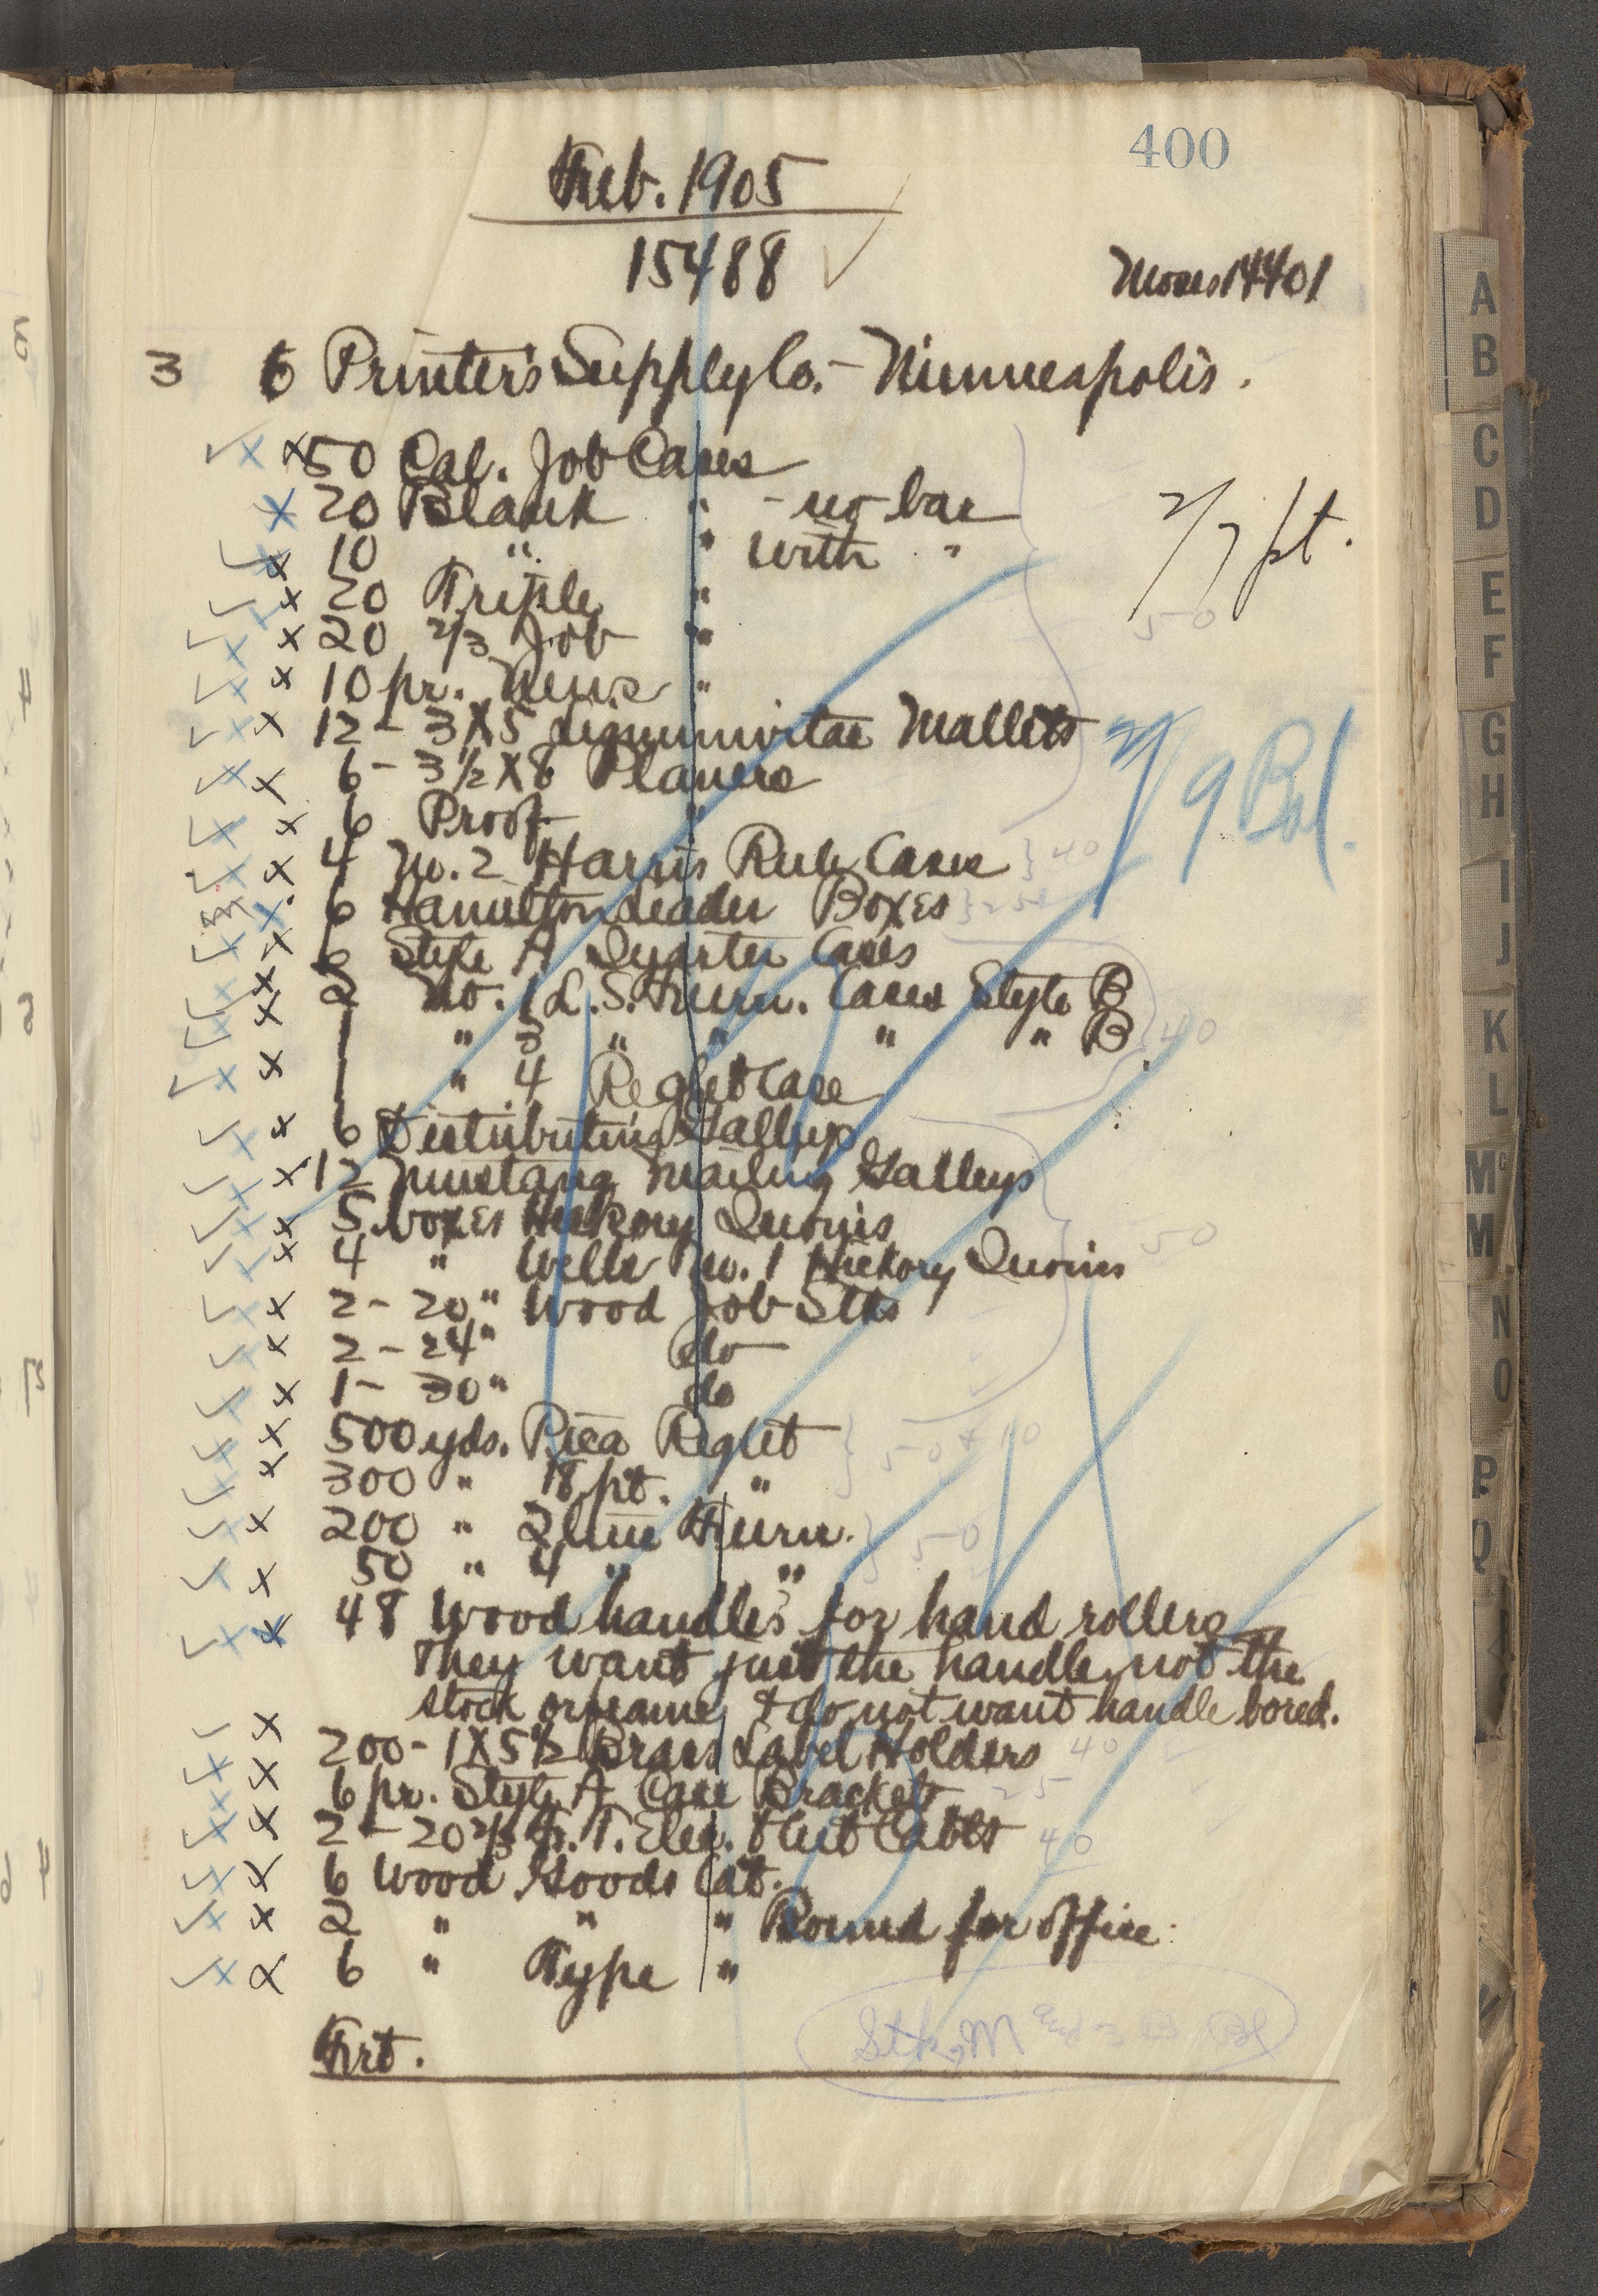 400
Feb. 1905
15488 ✓
Moses 14401
3 6 Printer's Supply Co. - Minneapolis.
50 Cal. Job Cases
20 Blank " - no bar
10 " " with "
2/7 pt.
20 Triple "
50
20 2/3 Job "
10 pr. News "
12 - 3X5 Lignumvitae Mallets
6 - 3½ X 8 Planers
2/9 Bal.
6 Proof "
4 No. 2 Harris Rule Cases } 40
6 Hamilton Leader Boxes } 25
6 Style A Quarter Cases
2 No. 1 L. S. Furn. Cases Style B
1 " 3 " " " " B 40
1 " 4 Reglet Case
6 Distributing Galleys
12 Mustang Mailing Galleys
5 boxes Hickory Quoins
4 " Wells No. 1 Hickory Quoins 50
2 - 20" Wood Job Stks
2 - 24" do
1 - 30" do
500 yds. Pica Reglet } 50 + 10
300 " 18 pt. "
200 " 2 line Furn. } 50
50 " 4 " "
48 Wood handles for hand rollers
They want just the handle, not the
stock or frame, & do not want handle bored.
200 - 1X5½ Brass Label Holders 40
6 pr. Style A Case Brackets 25
2 - 20 2/3 Fr. T. Elec. Cabts 40
6 Wood Goods Cat.
2 " " " Bound for office.
6 " Type "
Stk, M
Frt.
A
B
C
D
E
F
G
H
I
J
K
L
Mc
M
N
O
P
Q